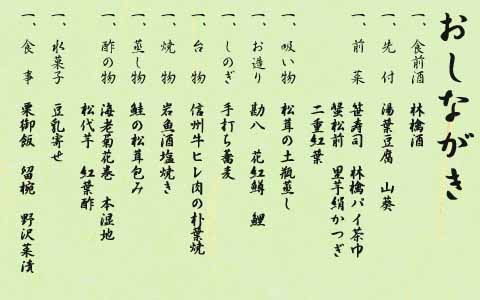 おしながき
一、食前酒 林檎酒
一、先付 湯葉豆腐 山葵
一、前菜 笹寿司 林檎パイ茶巾
蟹松前 里芋絹かつぎ
二重紅葉
一、吸い物 松茸の土瓶蒸し
一、お造り 勘八 花紅鱒 鯉
一、しのぎ 手打ち蕎麦
一、台物 信州牛ヒレ肉の朴葉焼
一、焼物 岩魚酒塩焼き
一、蒸し物 鮭の松茸包み
一、酢の物 海老菊花巻 本湿地
松代芋 紅葉酢
一、水菓子 豆乳寄せ
一、食事 栗御飯 留椀 野沢菜漬